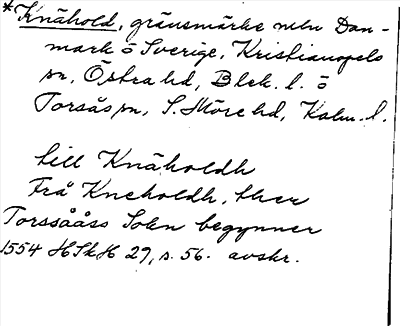 *Knähold, gränsmärke mellan Dan-
mark o Sverige, Kristianopels
sn, Östra hd, Blek. l. o
Torsås sn, S. Möre hd, Kalm. l.
till Knäholdh
Frå Kneholdh, ther
Torssååss Sokn begynner
1554 HSkH 29, s. 56. avskr.